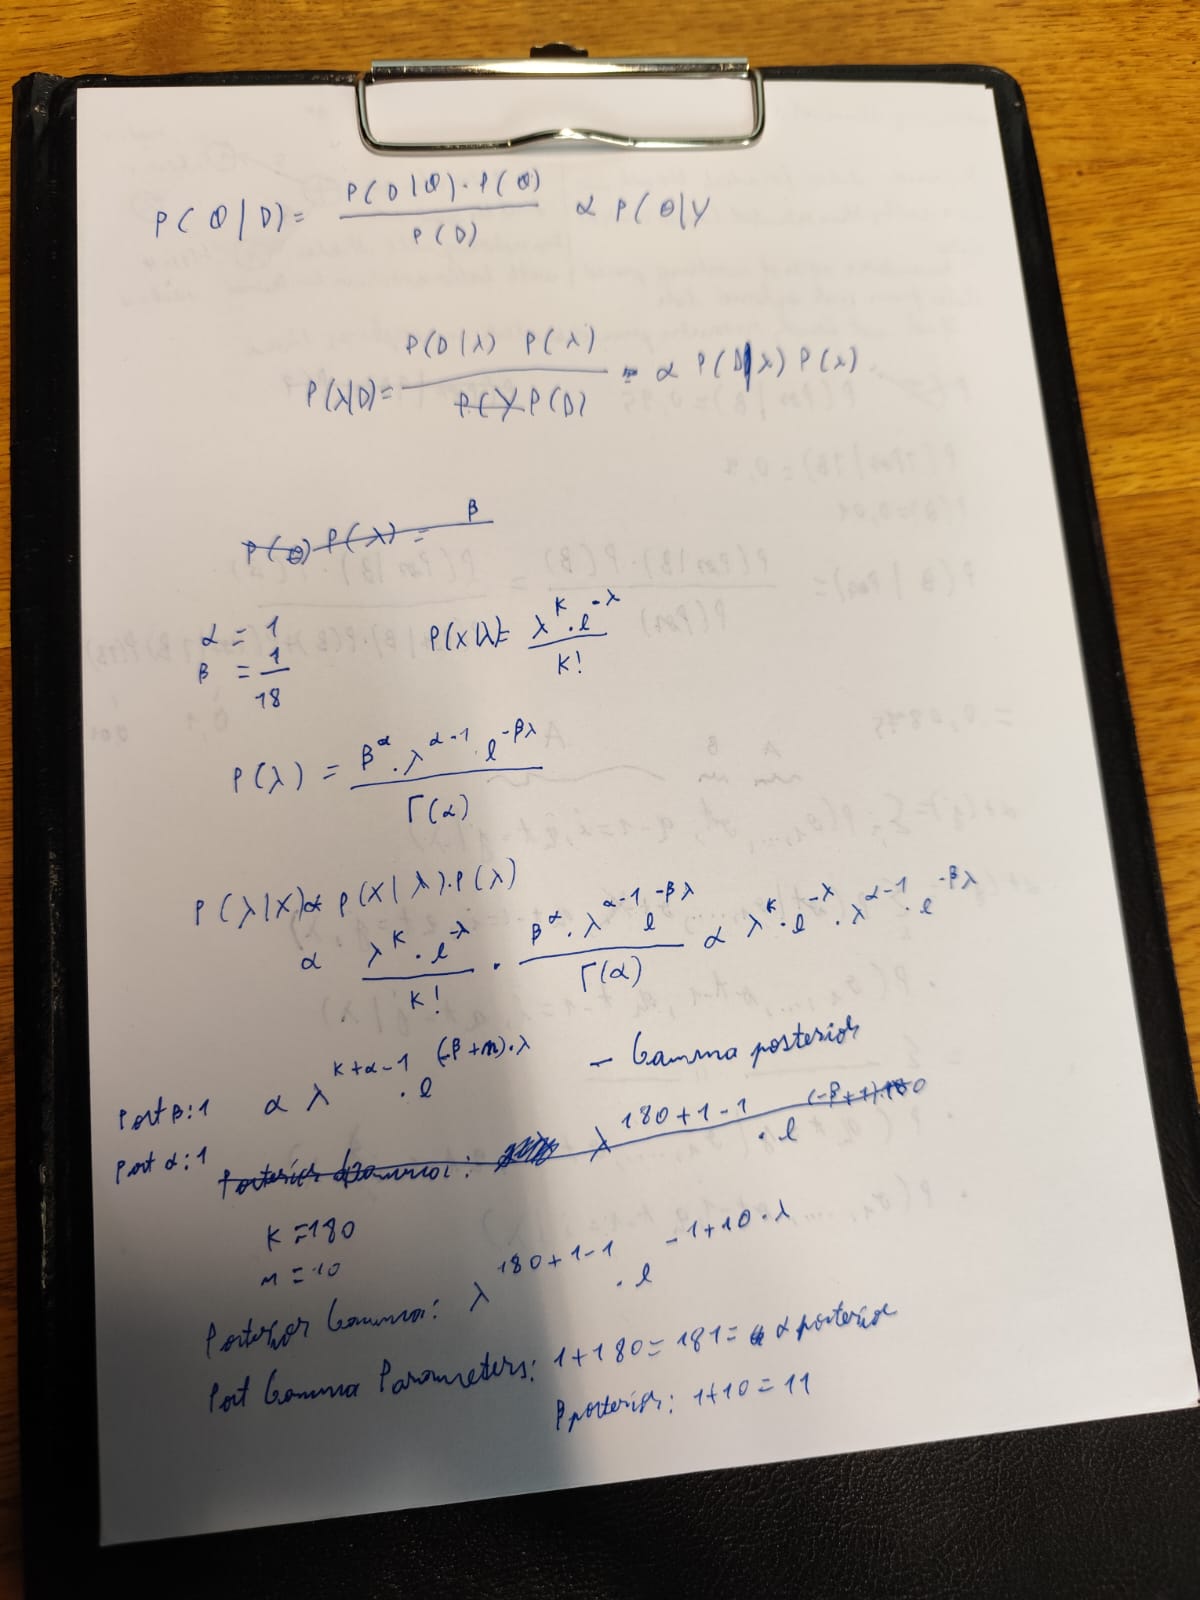 P(θ|D) = P(D|θ)·P(θ) / P(D) α P(θ|Y
P(λ|D) = P(D|λ) P(λ) / P(Y P(D) = α P(D|λ) P(λ)
P(θ) P(λ) = β
α = 1
β = 1/18
P(X|λ) = λ^K · e^-λ / K!
P(λ) = β^α · λ^α-1 · e^-βλ / Γ(α)
P(λ|X) α P(X|λ)·P(λ)
α λ^K · e^-λ / K! · β^α · λ^α-1 e^-βλ / Γ(α) α λ^K · e^-λ · λ^α-1 · e^-βλ
Post β: 1 α λ^K+α-1 · e^(-β+n)·λ - Gamma posterior
Post α: 1 Posterior Gamma: λ^180+1-1 · e^(-β+1)·180
K = 180
n = 10
Posterior Gamma: λ^180+1-1 · e^-1+10·λ
Post Gamma Parameters: 1+180 = 181 = α posterior
β posterior: 1+10 = 11